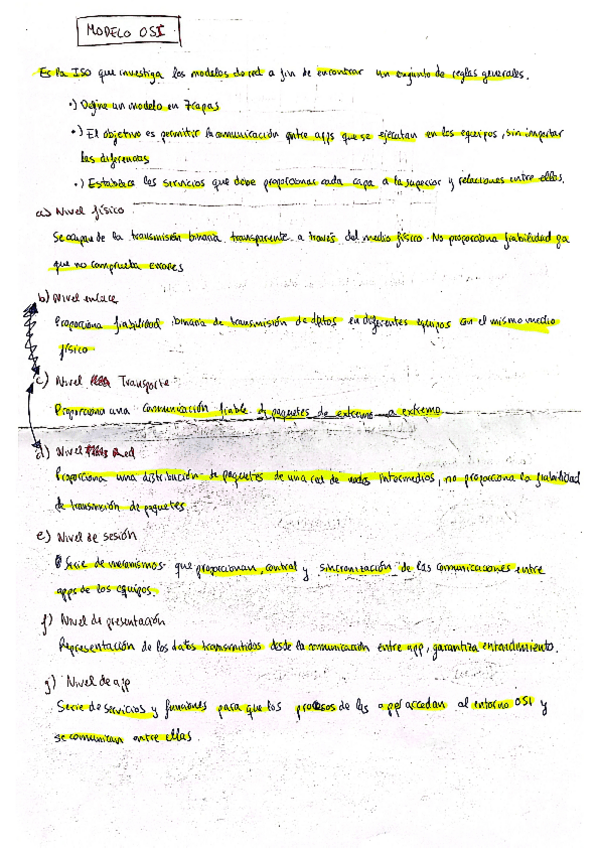 MODELO OSI
Es la ISO que investiga los modelos de red a fin de encontrar un conjunto de reglas generales.
•) Define un modelo en 7 capas
•) El objetivo es permitir la comunicación entre apps que se ejecutan en los equipos, sin importar
las diferencias
•) Establece los servicios que debe proporcionar cada capa a la superior y relaciones entre ellos.
a) Nivel físico
Se ocupa de la transmisión binaria transparente a través del medio físico. No proporciona fiabilidad ya
que no comprueba errores
b) Nivel enlace
Proporciona fiabilidad binaria de transmisión de datos en diferentes equipos con el mismo medio
físico
c) Nivel Transporte
Proporciona una comunicación fiable de paquetes de extremo a extremo
d) Nivel Red
Proporciona una distribución de paquetes de una red de nodos intermedios, no proporciona la fiabilidad
de transmisión de paquetes
e) Nivel de sesión
Serie de mecanismos que proporcionan, control y sincronización de las comunicaciones entre
apps de los equipos.
f) Nivel de presentación
Representación de los datos transmitidos desde la comunicación entre app, garantiza entendimiento.
g) Nivel de app
Serie de servicios y funciones para que los procesos de las app accedan al entorno OSI y
se comunican entre ellas.